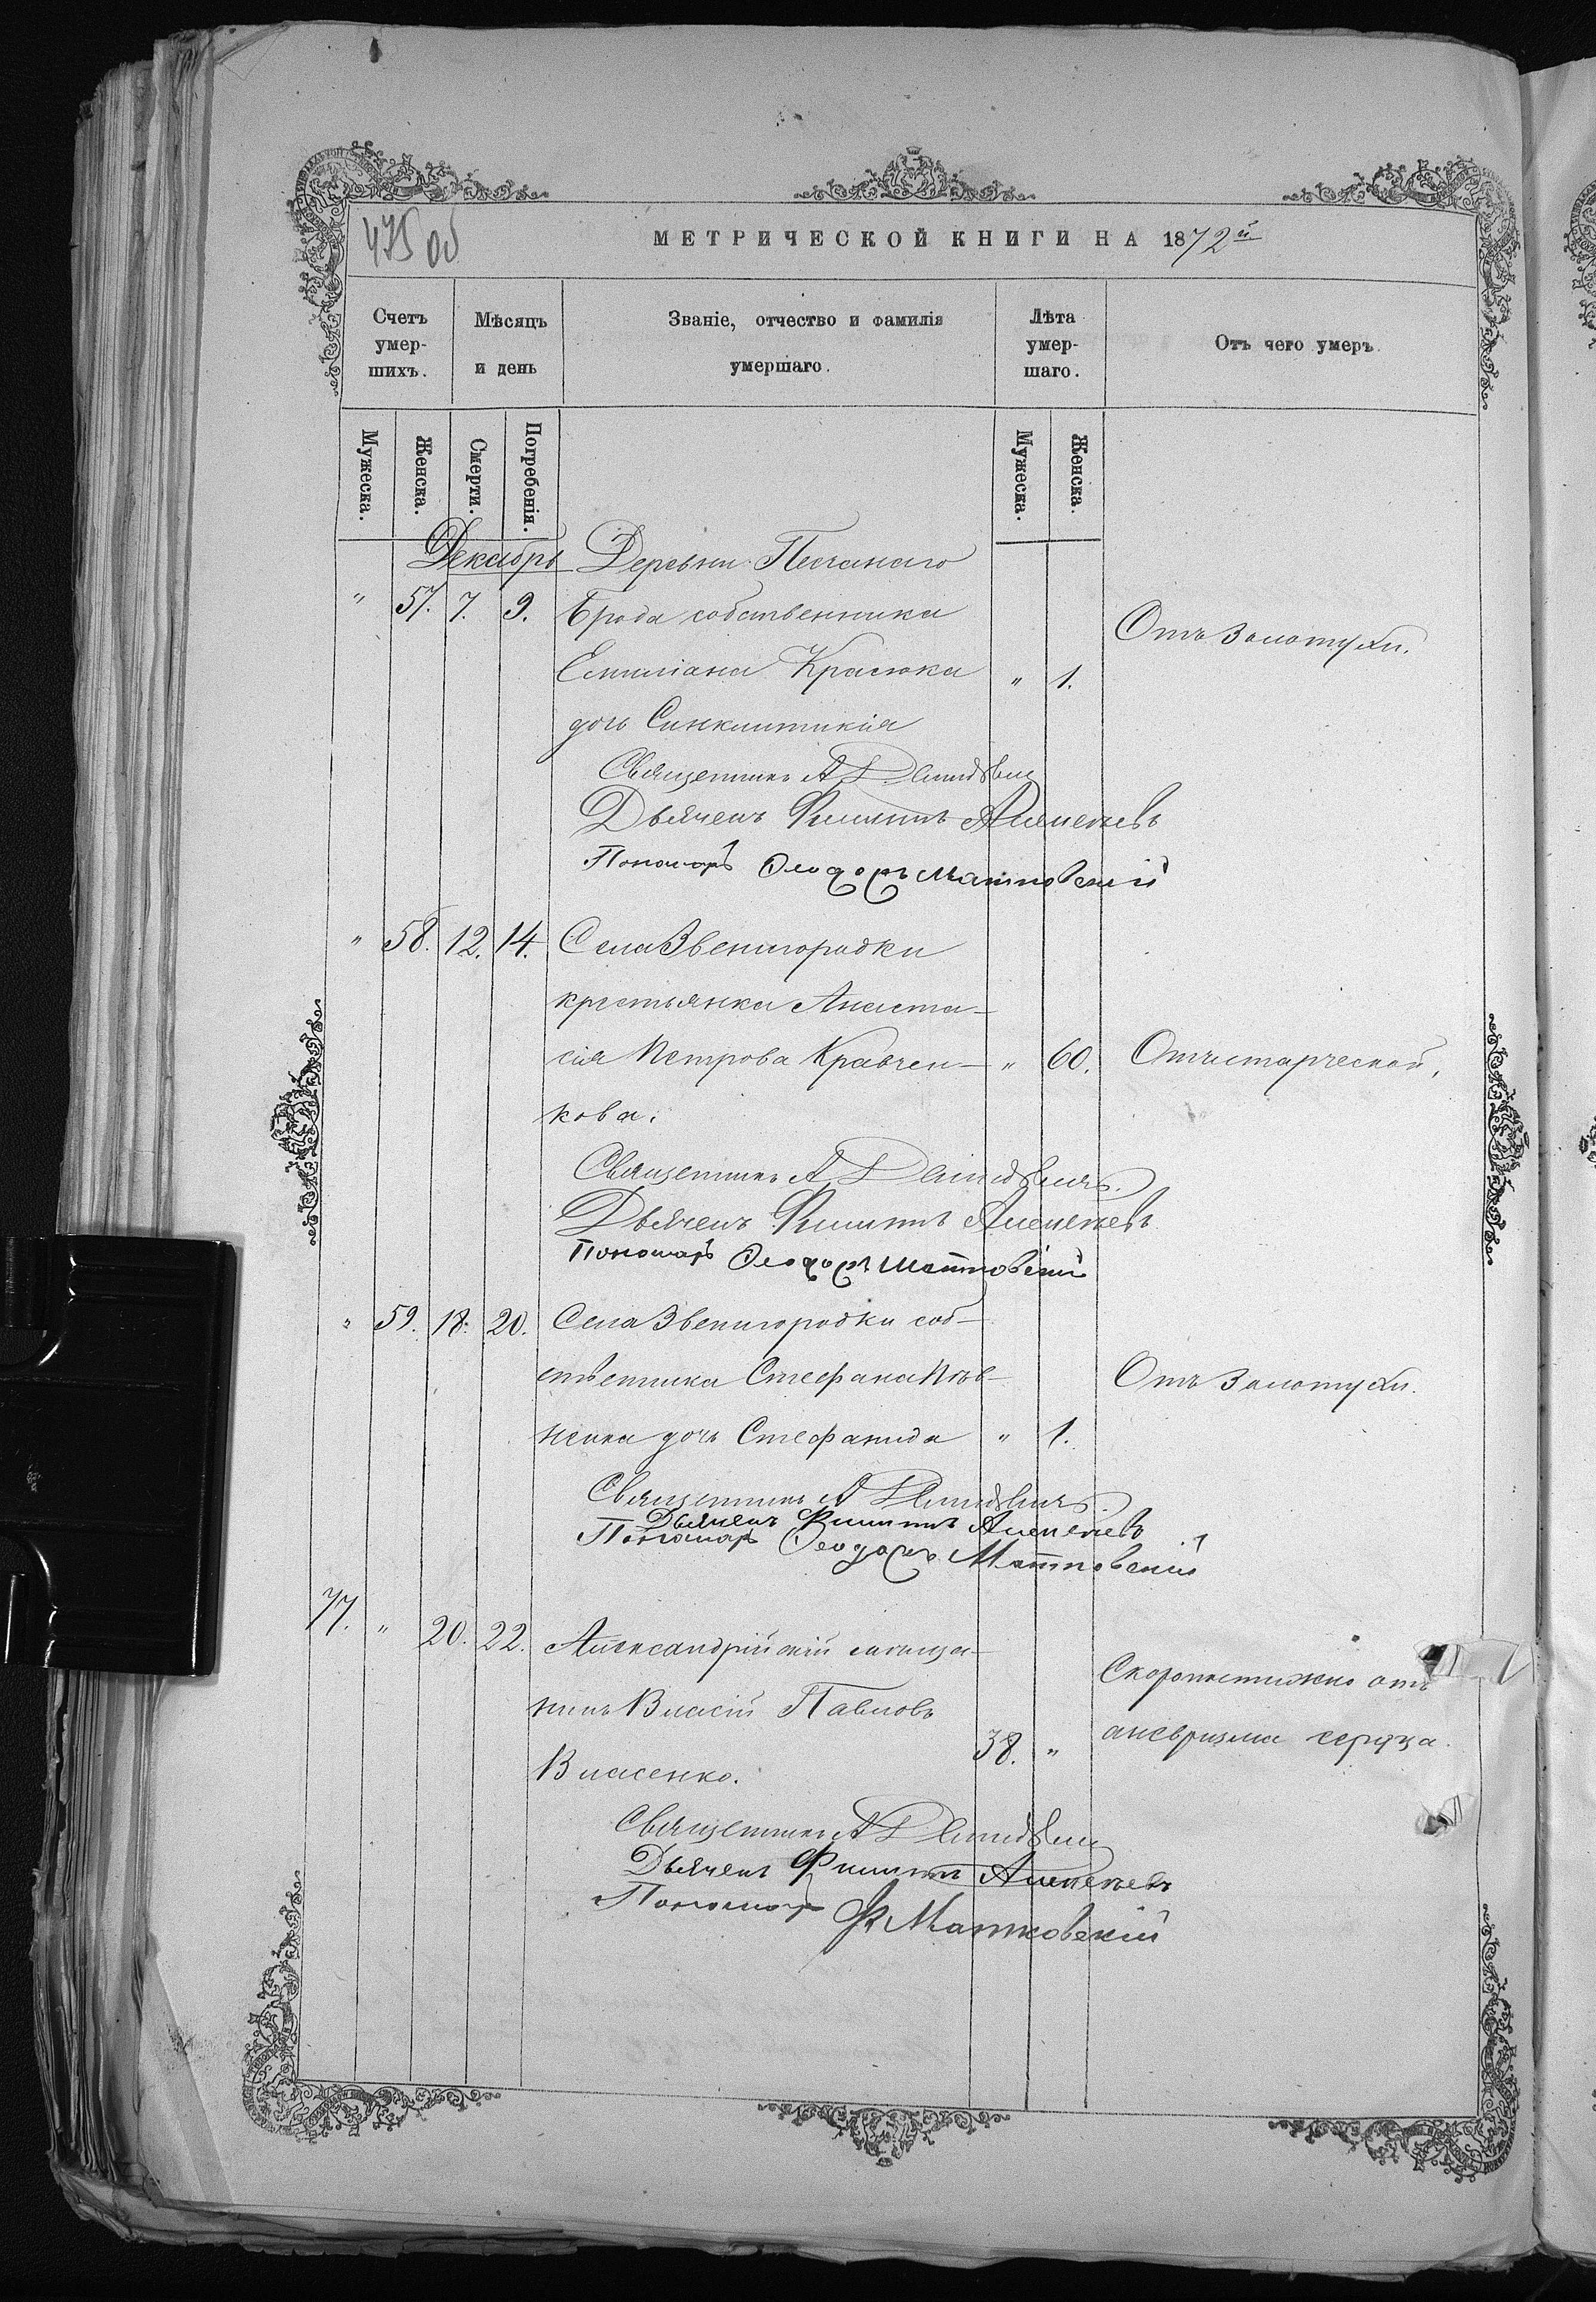 475 об
МЕТРИЧЕСКОЙ КНИГИ НА 1872й
Счетъ умершихъ.
Мѣсяцъ и день
Званіе, отчество и фамилія умершаго.
Лѣта умершаго.
Отъ чего умеръ.
Мужеска.
Женска.
Смерти.
Погребенія.
Мужеска.
Женска.
Декабрь Деревни Песчанаго
" 57. 7. 9. Брода собственника
Отъ золотухи.
Емиліана Красюка " 1.
дочь Синклитикія
Священникъ А
Дьячекъ Филиппъ
Пономарь Ѳеодоръ Матковскій
" 58. 12. 14. Села Звенигородки
крестьянка Анаста-
сія Петрова Кравчен- " 60. Отъ старческой.
кова.
Священникъ А
Дьячекъ Филиппъ
Пономарь Ѳеодоръ Матковскій
" 59. 18. 20. Села Звенигородки соб-
ственника Стефана Отъ золотухи.
дочь Стефанида " 1.
Священникъ А
Дьячекъ Филиппъ
Пономарь Ѳеодоръ Матковскій
77. " 20. 22. Александрійскій мѣща-
Скоропостижно отъ
нинъ Власій Павловъ
аневризма сердца.
38. "
Власенко.
Священникъ А
Дьячекъ Филиппъ
Пономарь Ѳ. Матковскій